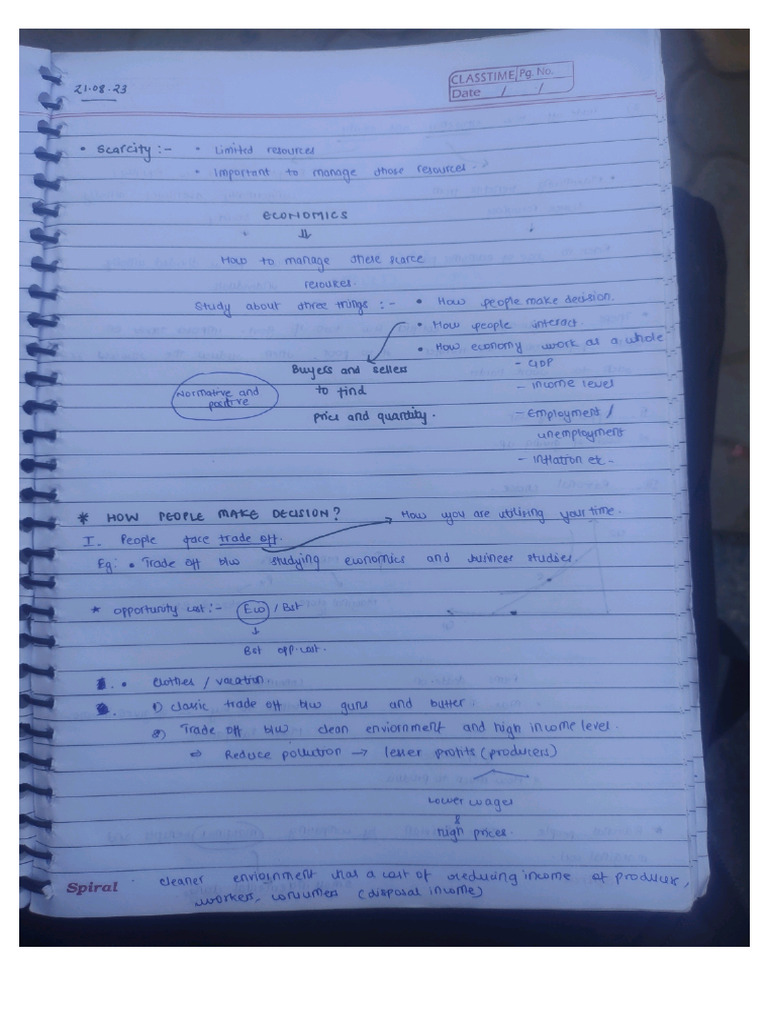 21.08.23
CLASSTIME Pg. No.
Date / /
• Scarcity :- • Limited resources
• Important to manage those resources.
ECONOMICS
⇓
How to manage these scarce
resources.
Study about three things :- • How people make decision.
• How people interact.
• How economy work as a whole
Buyers and sellers - GDP
to find - Income level
Normative and
positive
price and quantity. - Employment /
unemployment
- Inflation etc -
* HOW PEOPLE MAKE DECISION? How you are utilising your time.
I. People face trade off.
Eg: • Trade off b/w studying economics and business studies.
* opportunity cost :- Eco / Bst
↓
Bst opp. cost.
• clothes / vacation
1) classic trade off b/w guns and butter
2) Trade off b/w clean enviornment and high income level.
⇒ Reduce pollution → lesser profits (producers)
lower wages
&
high prices.
• cleaner enviornment has a cost of reducing income of producers,
workers, consumes (disposal income)
Spiral